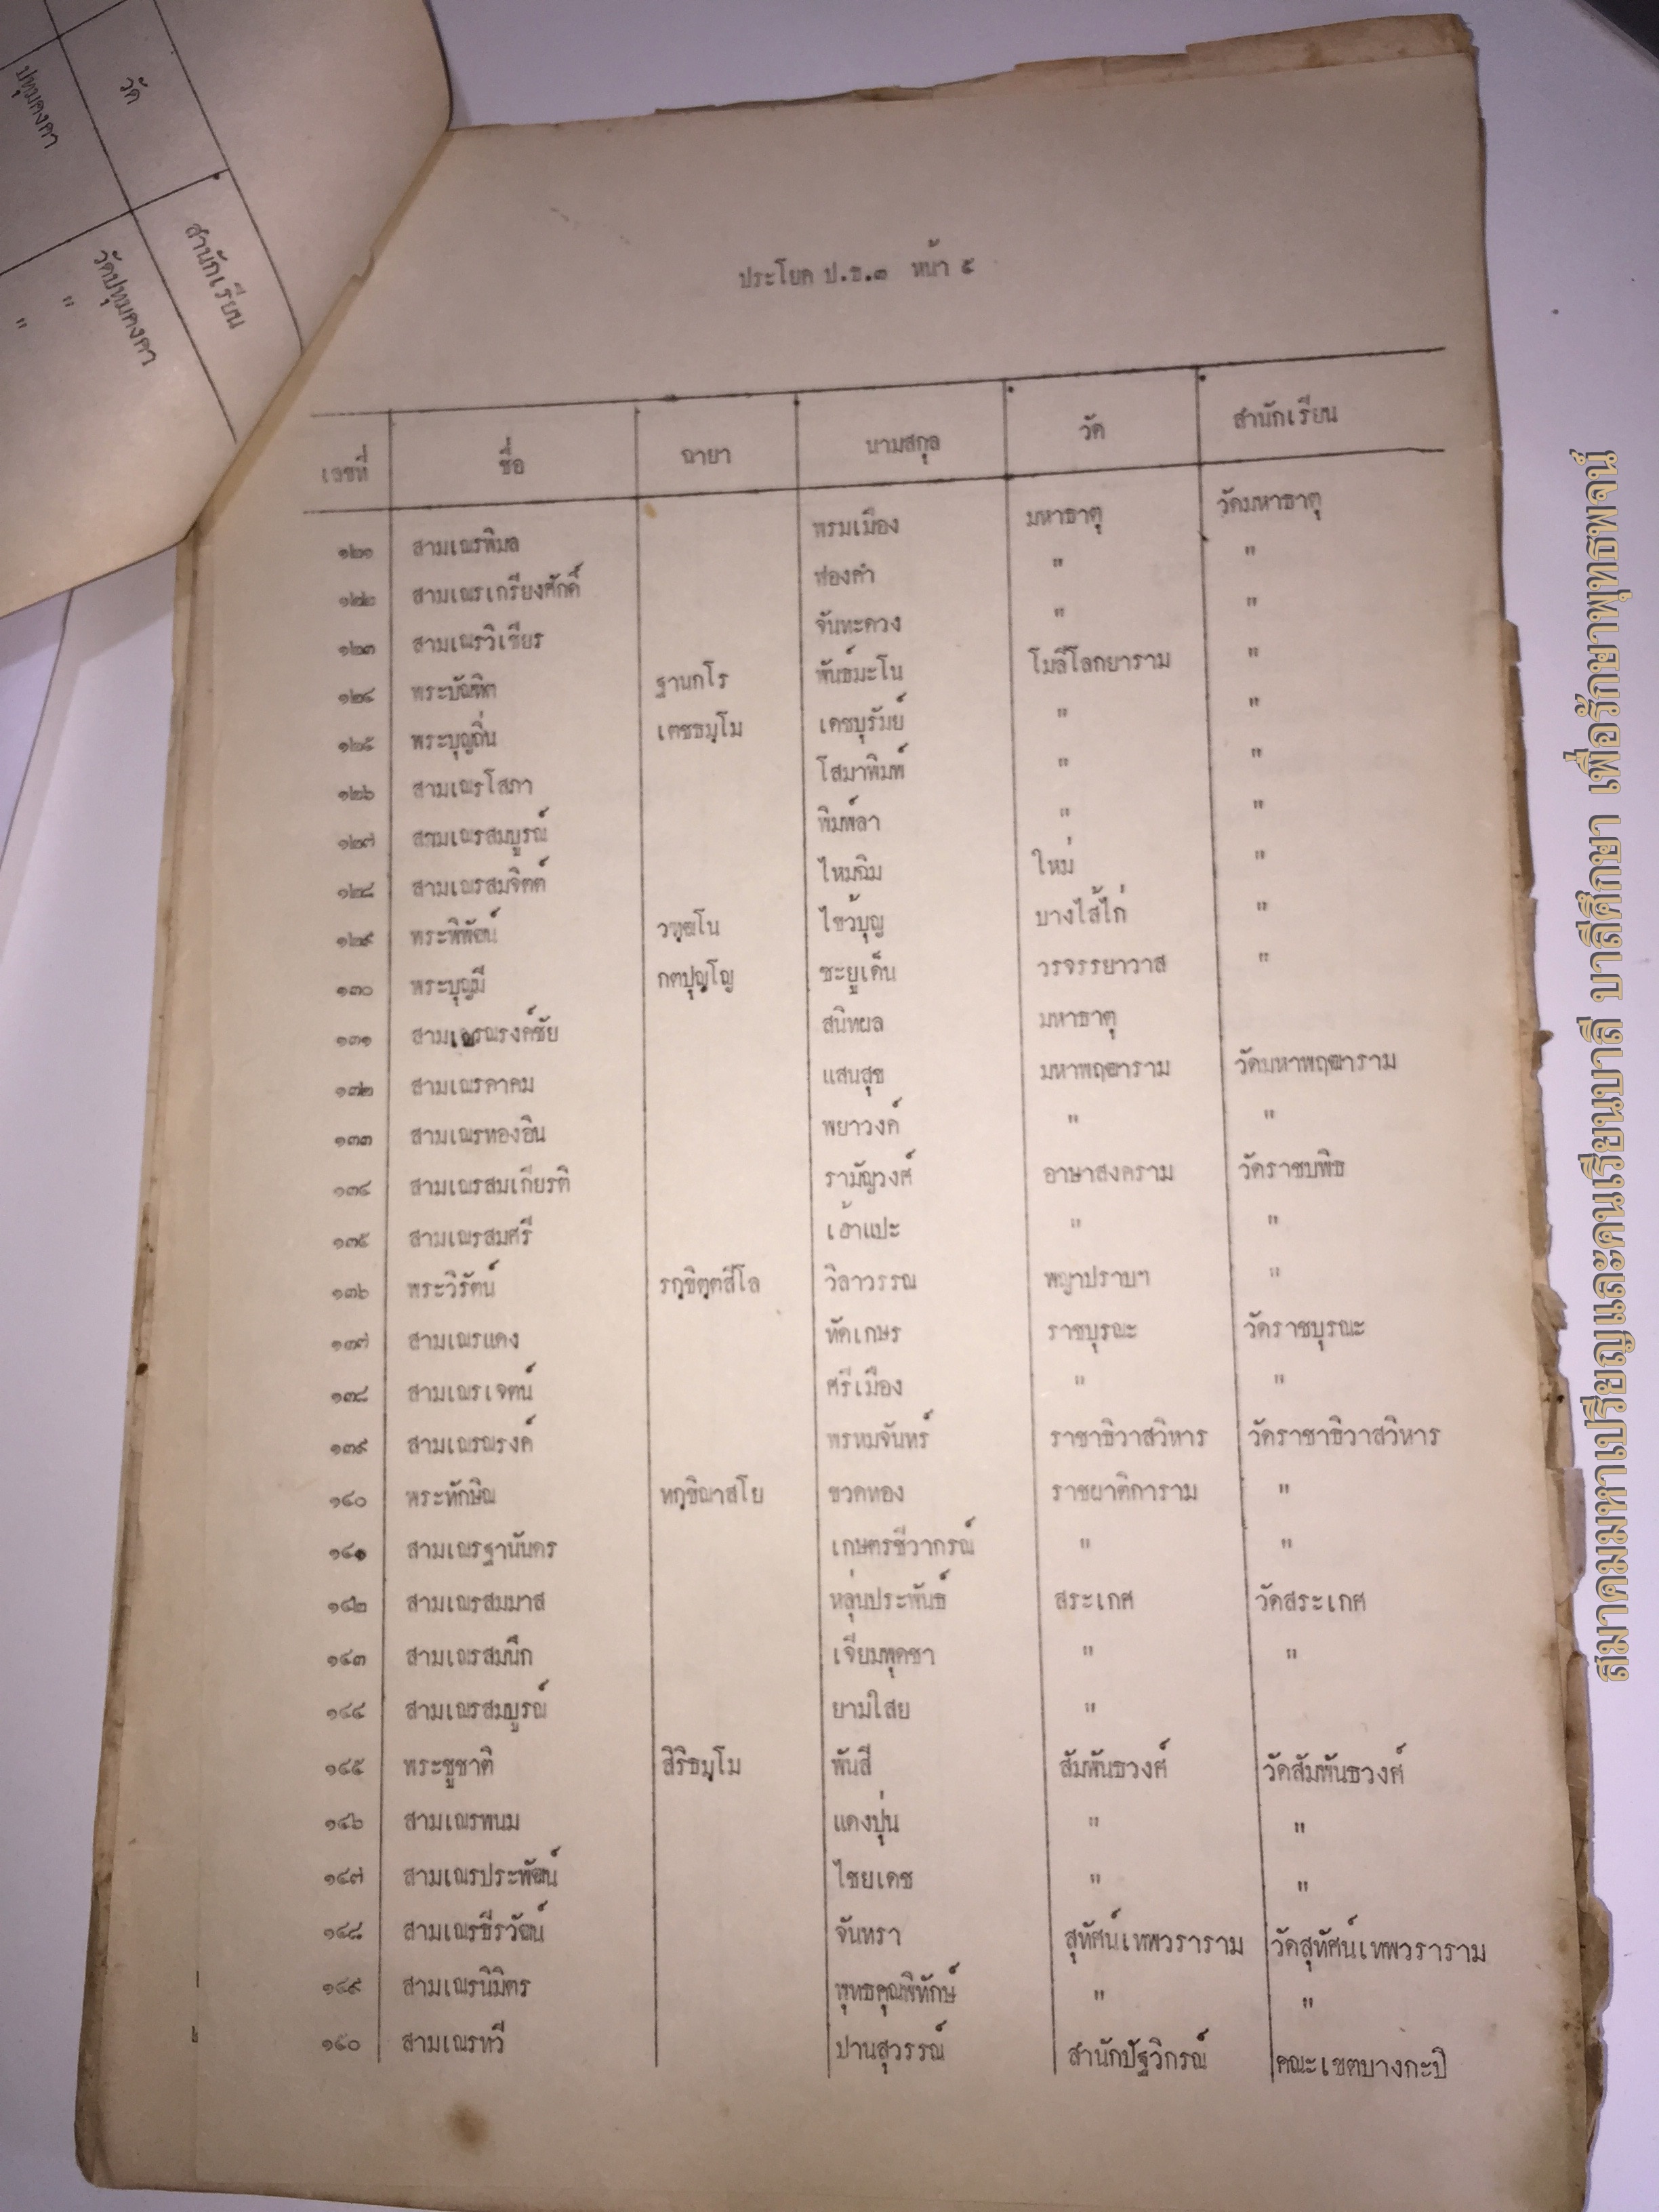 วัด
สำนักเรียน
ปทุมคงคา
วัดปทุมคงคา
"
"
ประโยค ป.ธ.๓ หน้า ๕
เลขที่ ชื่อ ฉายา นามสกุล วัด สำนักเรียน
๑๒๑ สามเณรพิมล พรมเมือง มหาธาตุ วัดมหาธาตุ
๑๒๒ สามเณรเกรียงศักดิ์ ฟองคำ " "
๑๒๓ สามเณรวิเชียร จันทะดวง " "
๑๒๔ พระบัณฑิต ฐานกโร พันธ์มะโน โมลีโลกยาราม "
๑๒๕ พระบุญถิ่น เตชธมฺโม เดชบุรัมย์ " "
๑๒๖ สามเณรโสภา โสมาพิมพ์ " "
๑๒๗ สามเณรสมบูรณ์ พิมพ์ลา " "
๑๒๘ สามเณรสมจิตต์ ไหมฉิม ใหม่ "
๑๒๙ พระพิพัฒน์ วฑฺฒโน ไขว้บุญ บางไส้ไก่ "
๑๓๐ พระบุญมี กตปุญฺโญ ชะยูเด็น วรจรรยาวาส "
๑๓๑ สามเณรณรงค์ชัย สนิทผล มหาธาตุ
๑๓๒ สามเณรคาคม แสนสุข มหาพฤฒาราม วัดมหาพฤฒาราม
๑๓๓ สามเณรทองอิน พยาวงค์ " "
๑๓๔ สามเณรสมเกียรติ รามัญวงศ์ อาษาสงคราม วัดราชบพิธ
๑๓๕ สามเณรสมศรี เฮ้าแปะ " "
๑๓๖ พระวิรัตน์ รกฺขิตฺตสีโล วิลาวรรณ พญาปราบฯ "
๑๓๗ สามเณรแดง ทัดเกษร ราชบุรณะ วัดราชบุรณะ
๑๓๘ สามเณรเจตน์ ศรีเมือง " "
๑๓๙ สามเณรณรงค์ พรหมจันทร์ ราชาธิวาสวิหาร วัดราชาธิวาสวิหาร
๑๔๐ พระทักษิณ ทกฺขิณาสโย ขวดทอง ราชผาติการาม "
๑๔๑ สามเณรฐานันดร เกษตรชีวากรณ์ " "
๑๔๒ สามเณรสมมาส หลุ่นประพันธ์ สระเกศ วัดสระเกศ
๑๔๓ สามเณรสมนึก เจียมพุดซา " "
๑๔๔ สามเณรสมบูรณ์ ยามใสย "
๑๔๕ พระชูชาติ สิริธมฺโม พันสี สัมพันธวงศ์ วัดสัมพันธวงศ์
๑๔๖ สามเณรพนม แดงปุ่น " "
๑๔๗ สามเณรประพัฒน์ ไชยเดช " "
๑๔๘ สามเณรธีรวัฒน์ จันทรา สุทัศน์เทพวราราม วัดสุทัศน์เทพวราราม
๑๔๙ สามเณรนิมิตร พุทธคุณพิทักษ์ " "
๑๕๐ สามเณรทวี ปานสุวรรณ์ สำนักปัฐวิกรณ์ คณะเขตบางกะปิ
สมาคมมหาเปรียญและคนเรียนบาลี บาลีศึกษา เพื่อรักษาพุทธพจน์